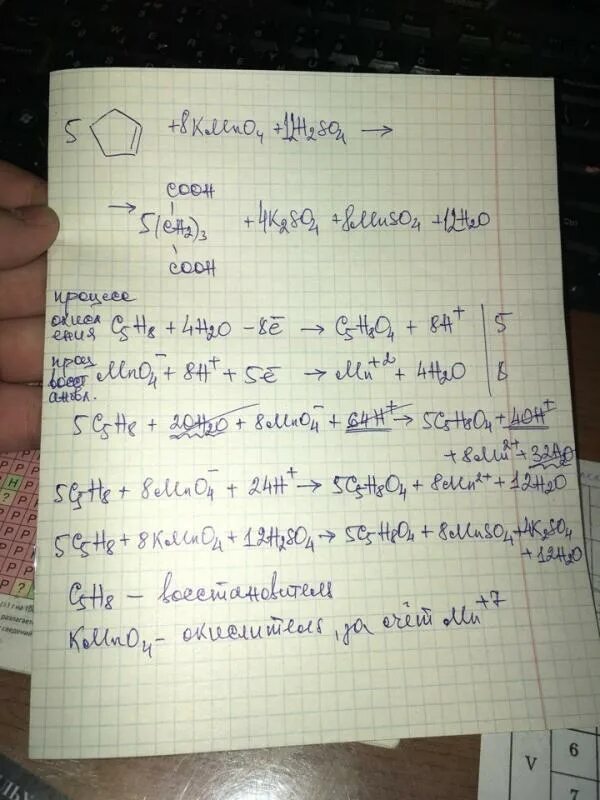 5 +8KMnO₄ +12H₂SO₄ →
COOH
→ 5(CH₂)₃ +4K₂SO₄ +8MnSO₄ +12H₂O
COOH
процесс
окисл
ения C₅H₈ + 4H₂O – 8ē → C₅H₈O₄ + 8H⁺ | 5
проц
восст
ановл. MnO₄⁻ + 8H⁺ + 5ē → Mn⁺² + 4H₂O | 8
5C₅H₈ + 20H₂O + 8MnO₄⁻ + 64H⁺ → 5C₅H₈O₄ + 40H⁺
+ 8Mn²⁺ + 32H₂O
5C₅H₈ + 8MnO₄⁻ + 24H⁺ → 5C₅H₈O₄ + 8Mn²⁺ + 12H₂O
5C₅H₈ + 8KMnO₄ + 12H₂SO₄ → 5C₅H₈O₄ + 8MnSO₄ +4K₂SO₄
+ 12H₂O
C₅H₈ – восстановитель
KMnO₄ – окислитель, за счёт Mn⁺⁷
V 6
7